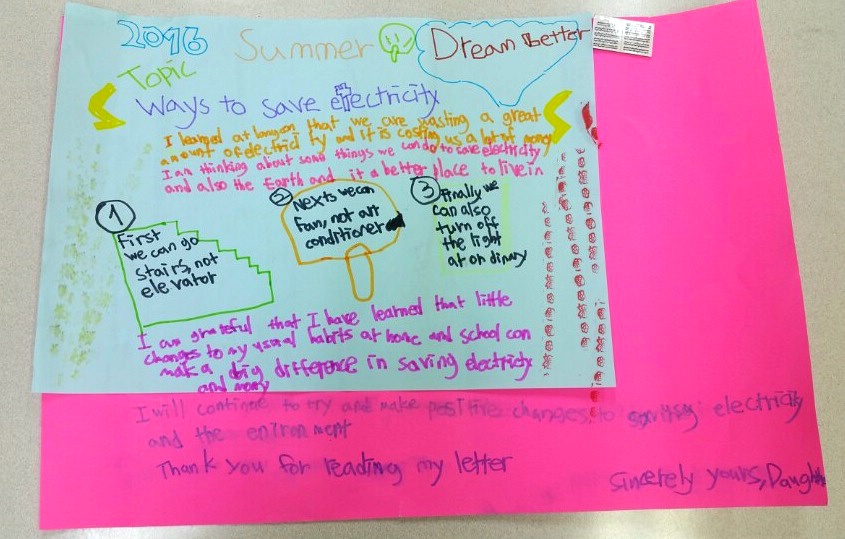 2016 Summer Dream Better
Topic
Ways to save electricity
I learned at that we are wasting a great
amount of electricity and it is costing us a lot of money
I am thinking about some things we can do to save electricity
and also the Earth and it a better place to live in
1
First
we can go
stairs, not
elevator
2
Nexts we can
fan, not air
conditioner
3
Finally we
can also
turn off
the light
at ordinary
I am grateful that I have learned that little
changes to my usual habits at home and school can
make a big difference in saving electricity
and money
I will continue to try and make positive changes to saving electricity
and the enironment
Thank you for reading my letter
sincerely yours,